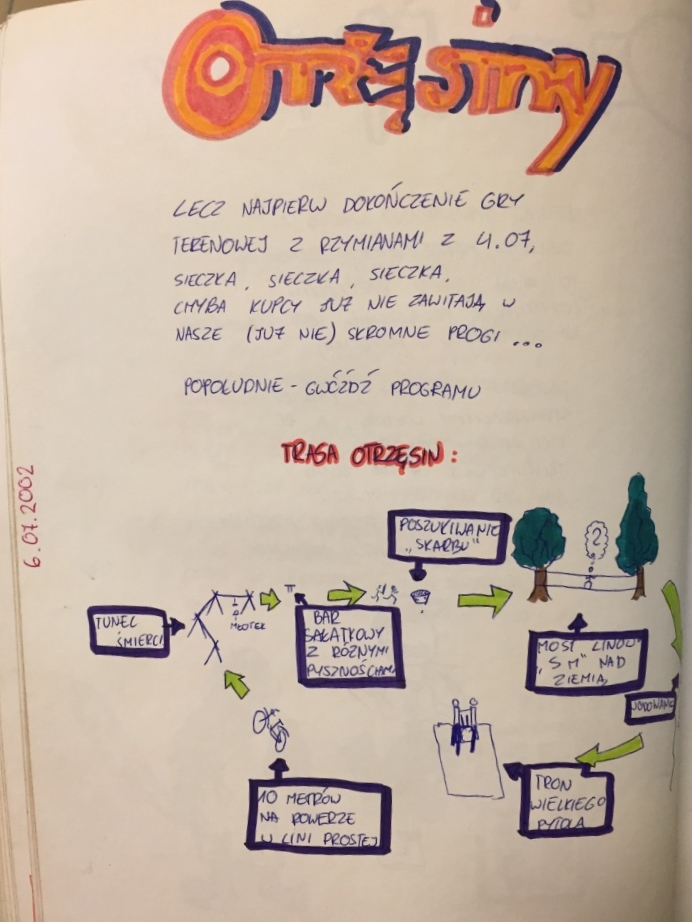 Otrzęsiny
LECZ NAJPIERW DOKOŃCZENIE GRY
TERENOWEJ Z RZYMIANAMI Z 4.07,
SIECZKA, SIECZKA, SIECZKA,
CHYBA KUPCY JUŻ NIE ZAWITAJĄ W
NASZE (JUŻ NIE) SKROMNE PROGI ...
POPOŁUDNIE - GWÓŹDŹ PROGRAMU
6.07.2002
TRASA OTRZĘSIN:
POSZUKIWANIE
„SKARBU"
TUNEL
ŚMIERCI
MŁOTEK
BAR
SAŁATKOWY
Z RÓŻNYMI
PYSZNOŚCIAMI
?
MOST LINOWY
„5 M" NAD
ZIEMIĄ
10 METRÓW
NA ROWERZE
W LINI PROSTEJ
TRON
WIELKIEGO